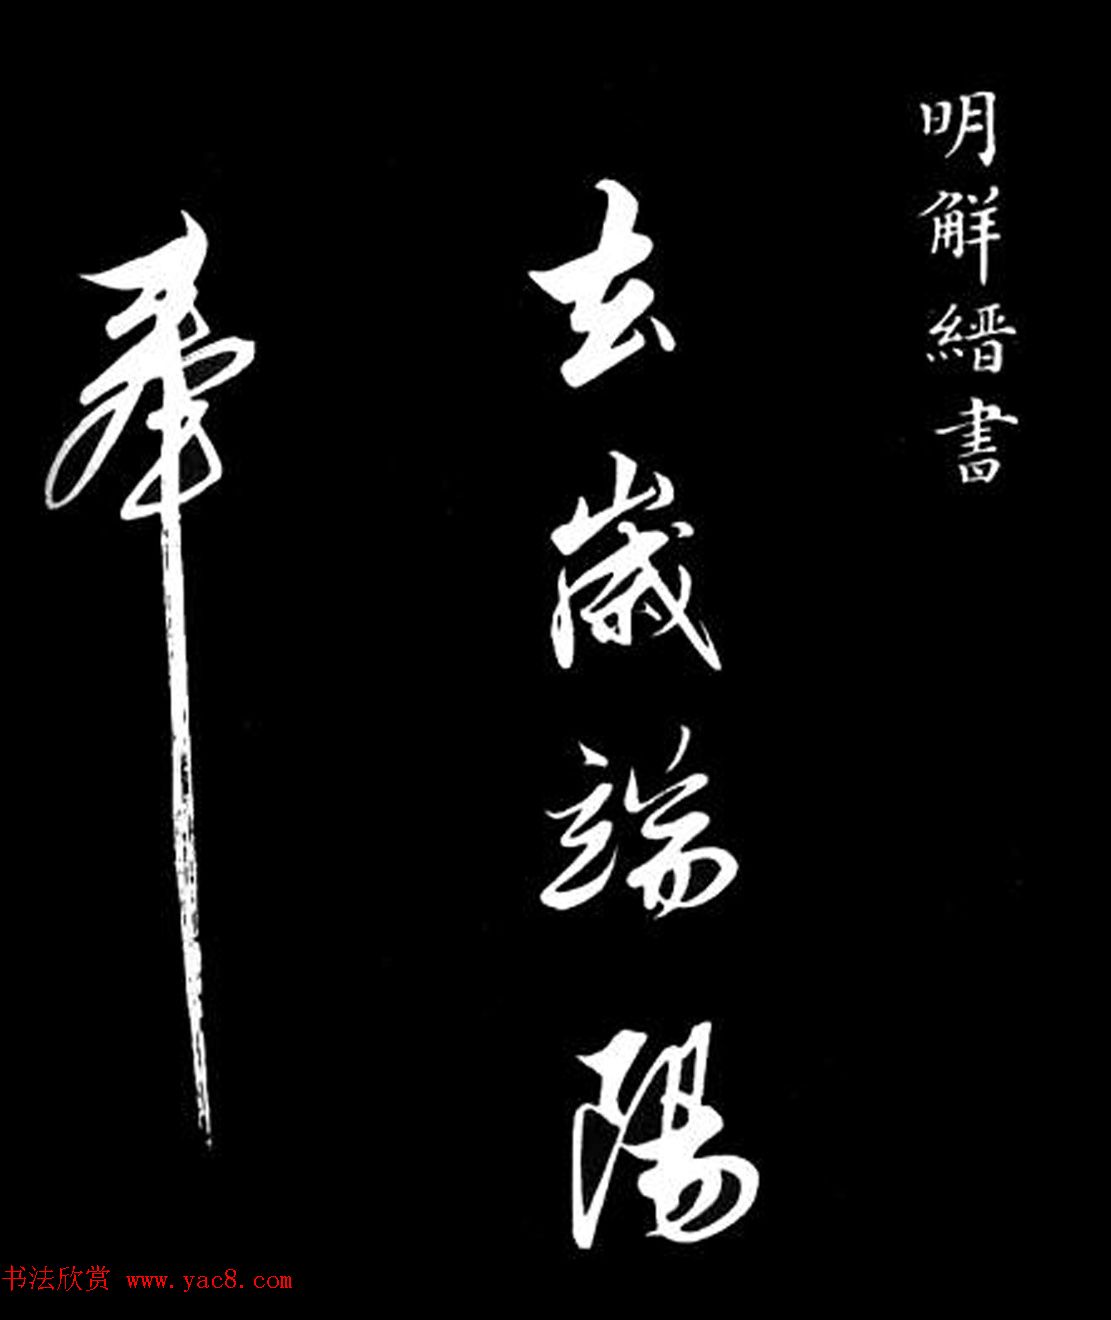 明解縉書
去歲端陽
奉
书法欣赏 www.yac8.com